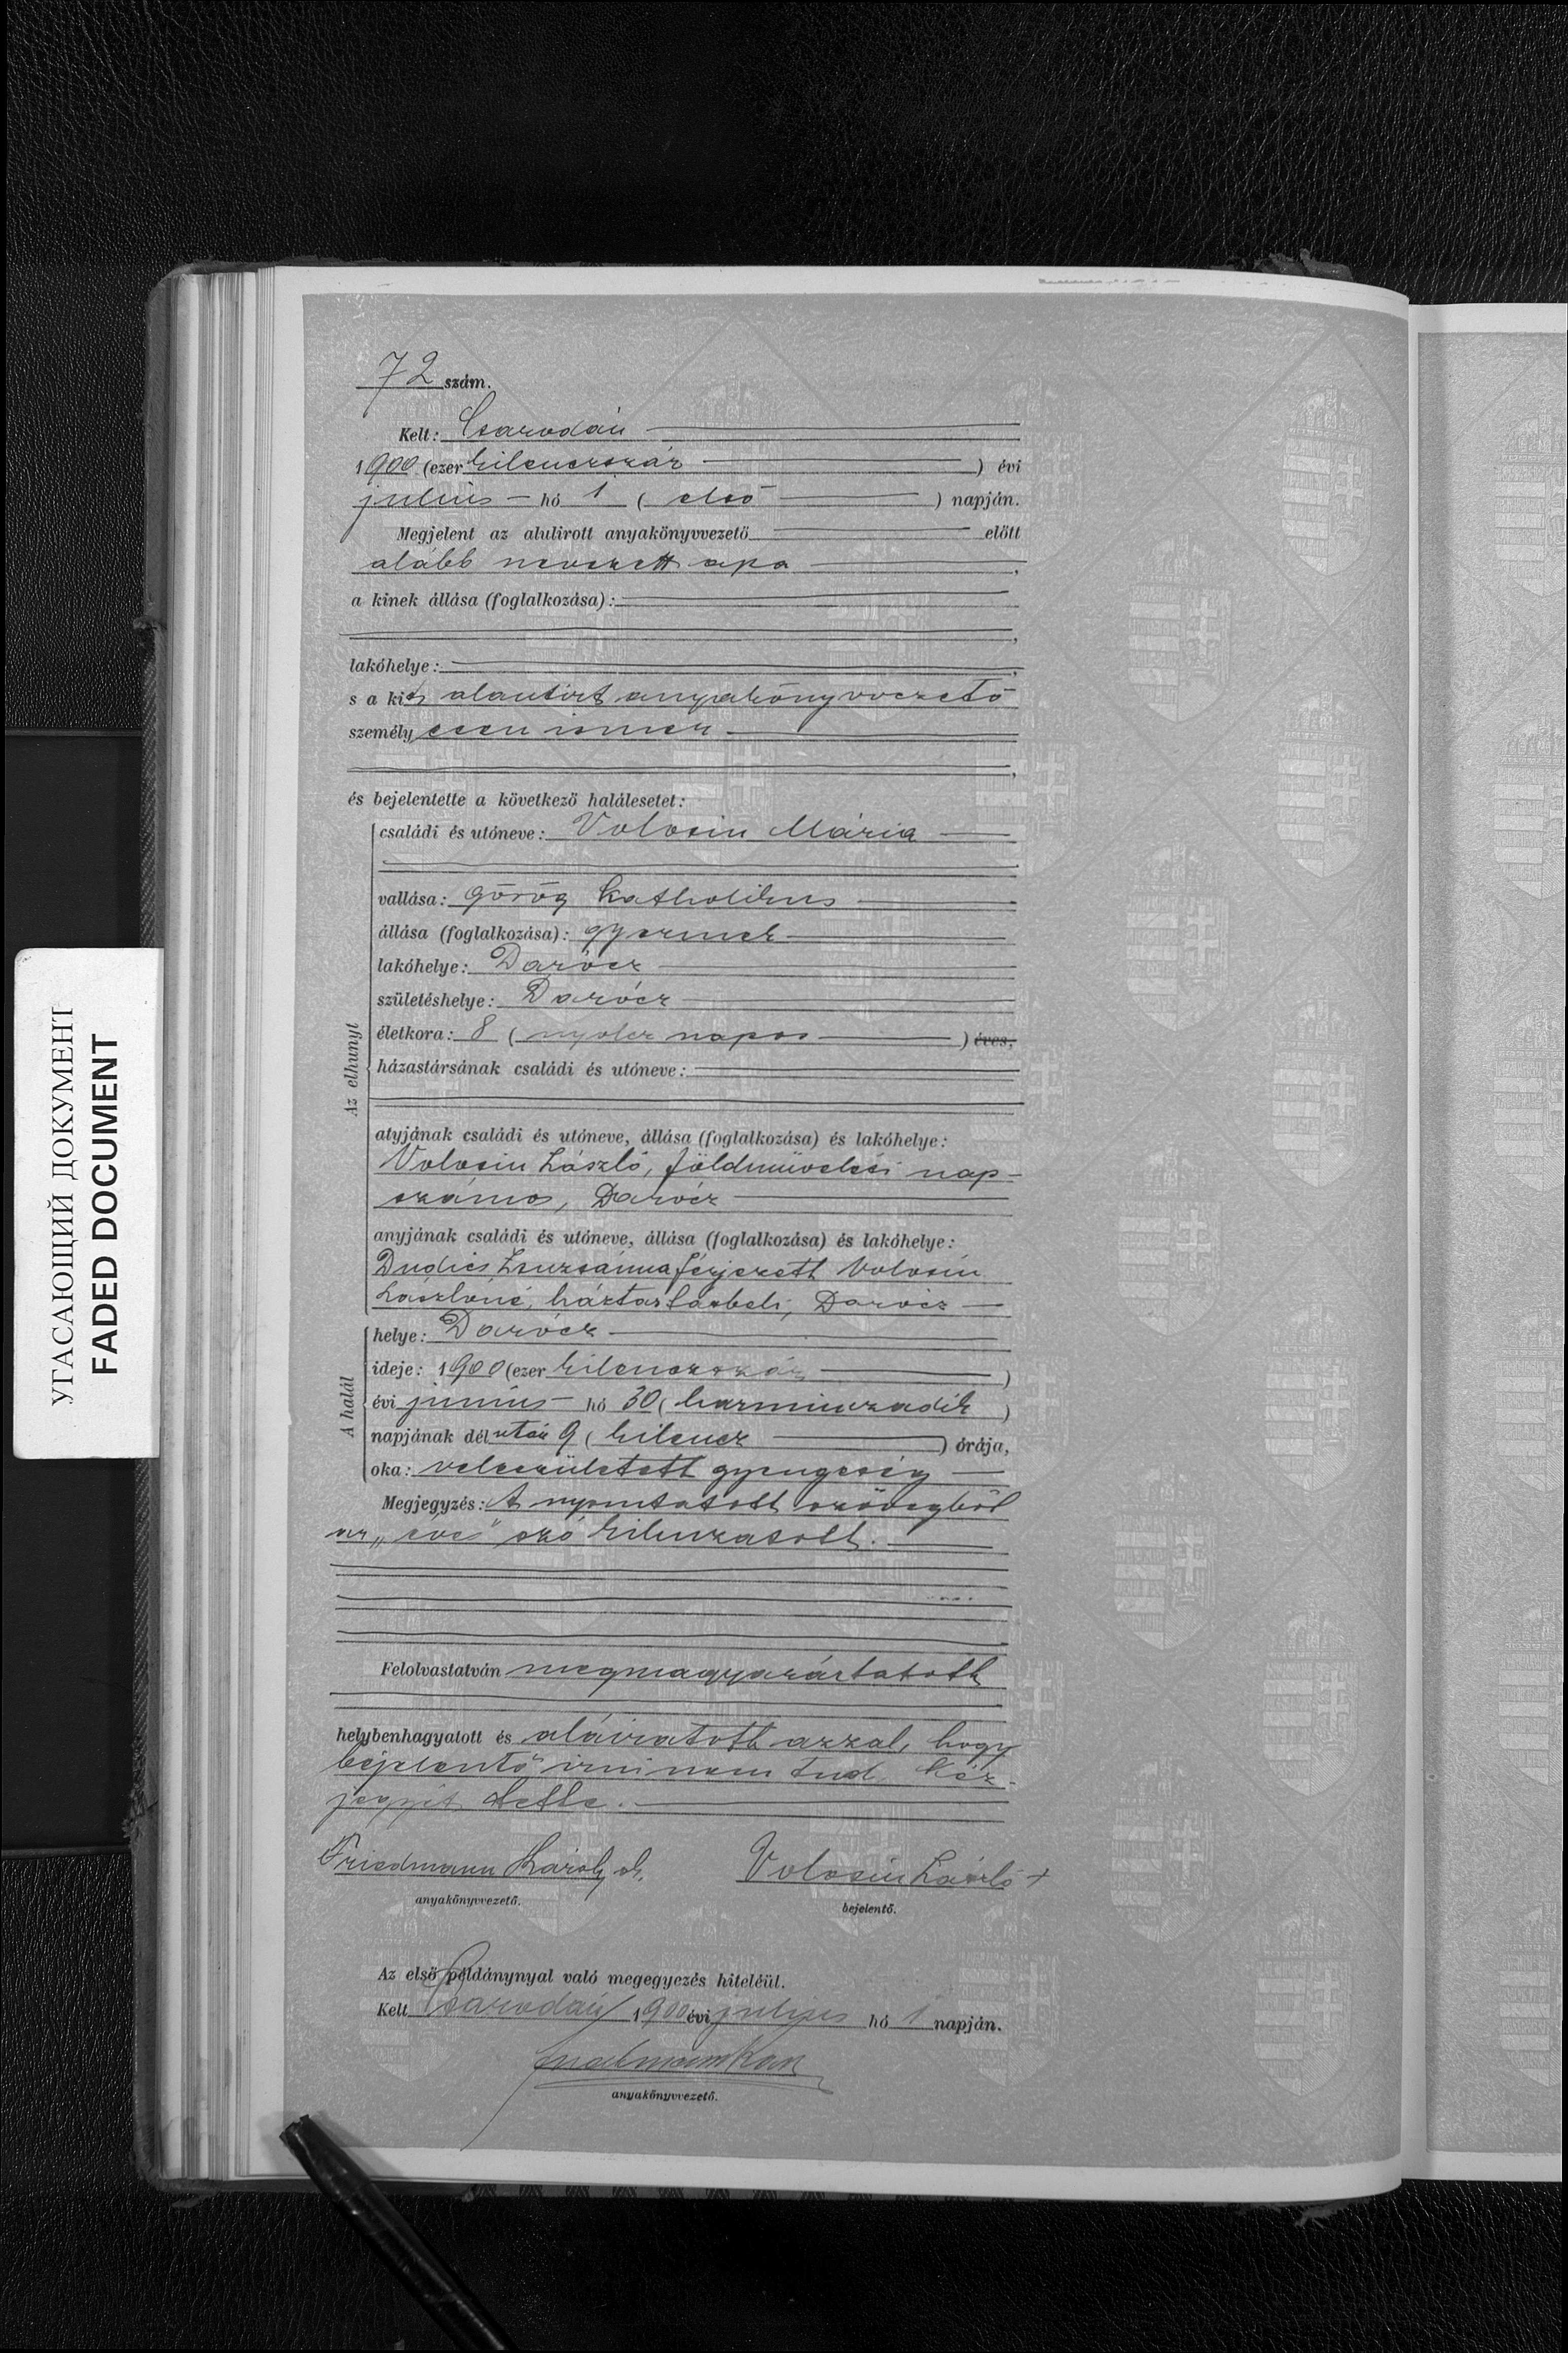 УГАСАЮЩИЙ ДОКУМЕНТ
FADED DOCUMENT
72 szám.
Kelt: Csarodán
1900 (ezer kilenczszáz ) évi
julius hó 1 ( első ) napján.
Megjelent az alulirott anyakönyvvezető előtt
alább nevezett apa ,
a kinek állása (foglalkozása):
,
lakóhelye: ,
s a kit alantirt anyakönyvvezető
személyesen ismer
,
és bejelentette a következő halálesetet:
Az elhunyt
családi és utóneve: Volosin Mária
vallása: görög katholikus
állása (foglalkozása): gyermek
lakóhelye: Darócz
születéshelye: Darócz
életkora: 8 ( nyolcz napos ) éves,
házastársának családi és utóneve:
atyjának családi és utóneve, állása (foglalkozása) és lakóhelye:
Volosin László, földmüvelési nap-
számos, Darócz
anyjának családi és utóneve, állása (foglalkozása) és lakóhelye:
Dudics Zsuzsánna férjezett Volosin
Lászlóné, háztartásbeli, Darócz
A halál
helye: Darócz
ideje: 1900 (ezer kilenczszáz )
évi junius hó 30 ( harminczadik )
napjának délután 9 ( kilencz ) órája,
oka: veleszületett gyengeség
Megjegyzés: A nyomtatott szövegből
az „éves" szó kihuzatott.
Felolvastatván megmagyaráztatott
helybenhagyatott és aláiratott azzal, hogy
bejelentő irni nem tud. Kéz-
jegyét tette.
Friedmann Károly sk. Volosin László +
anyakönyvvezető. bejelentő.
Az első példánynyal való megegyezés hiteléül.
Kelt Csarodán 1900 évi julius hó 1 napján.
anyakönyvvezető.